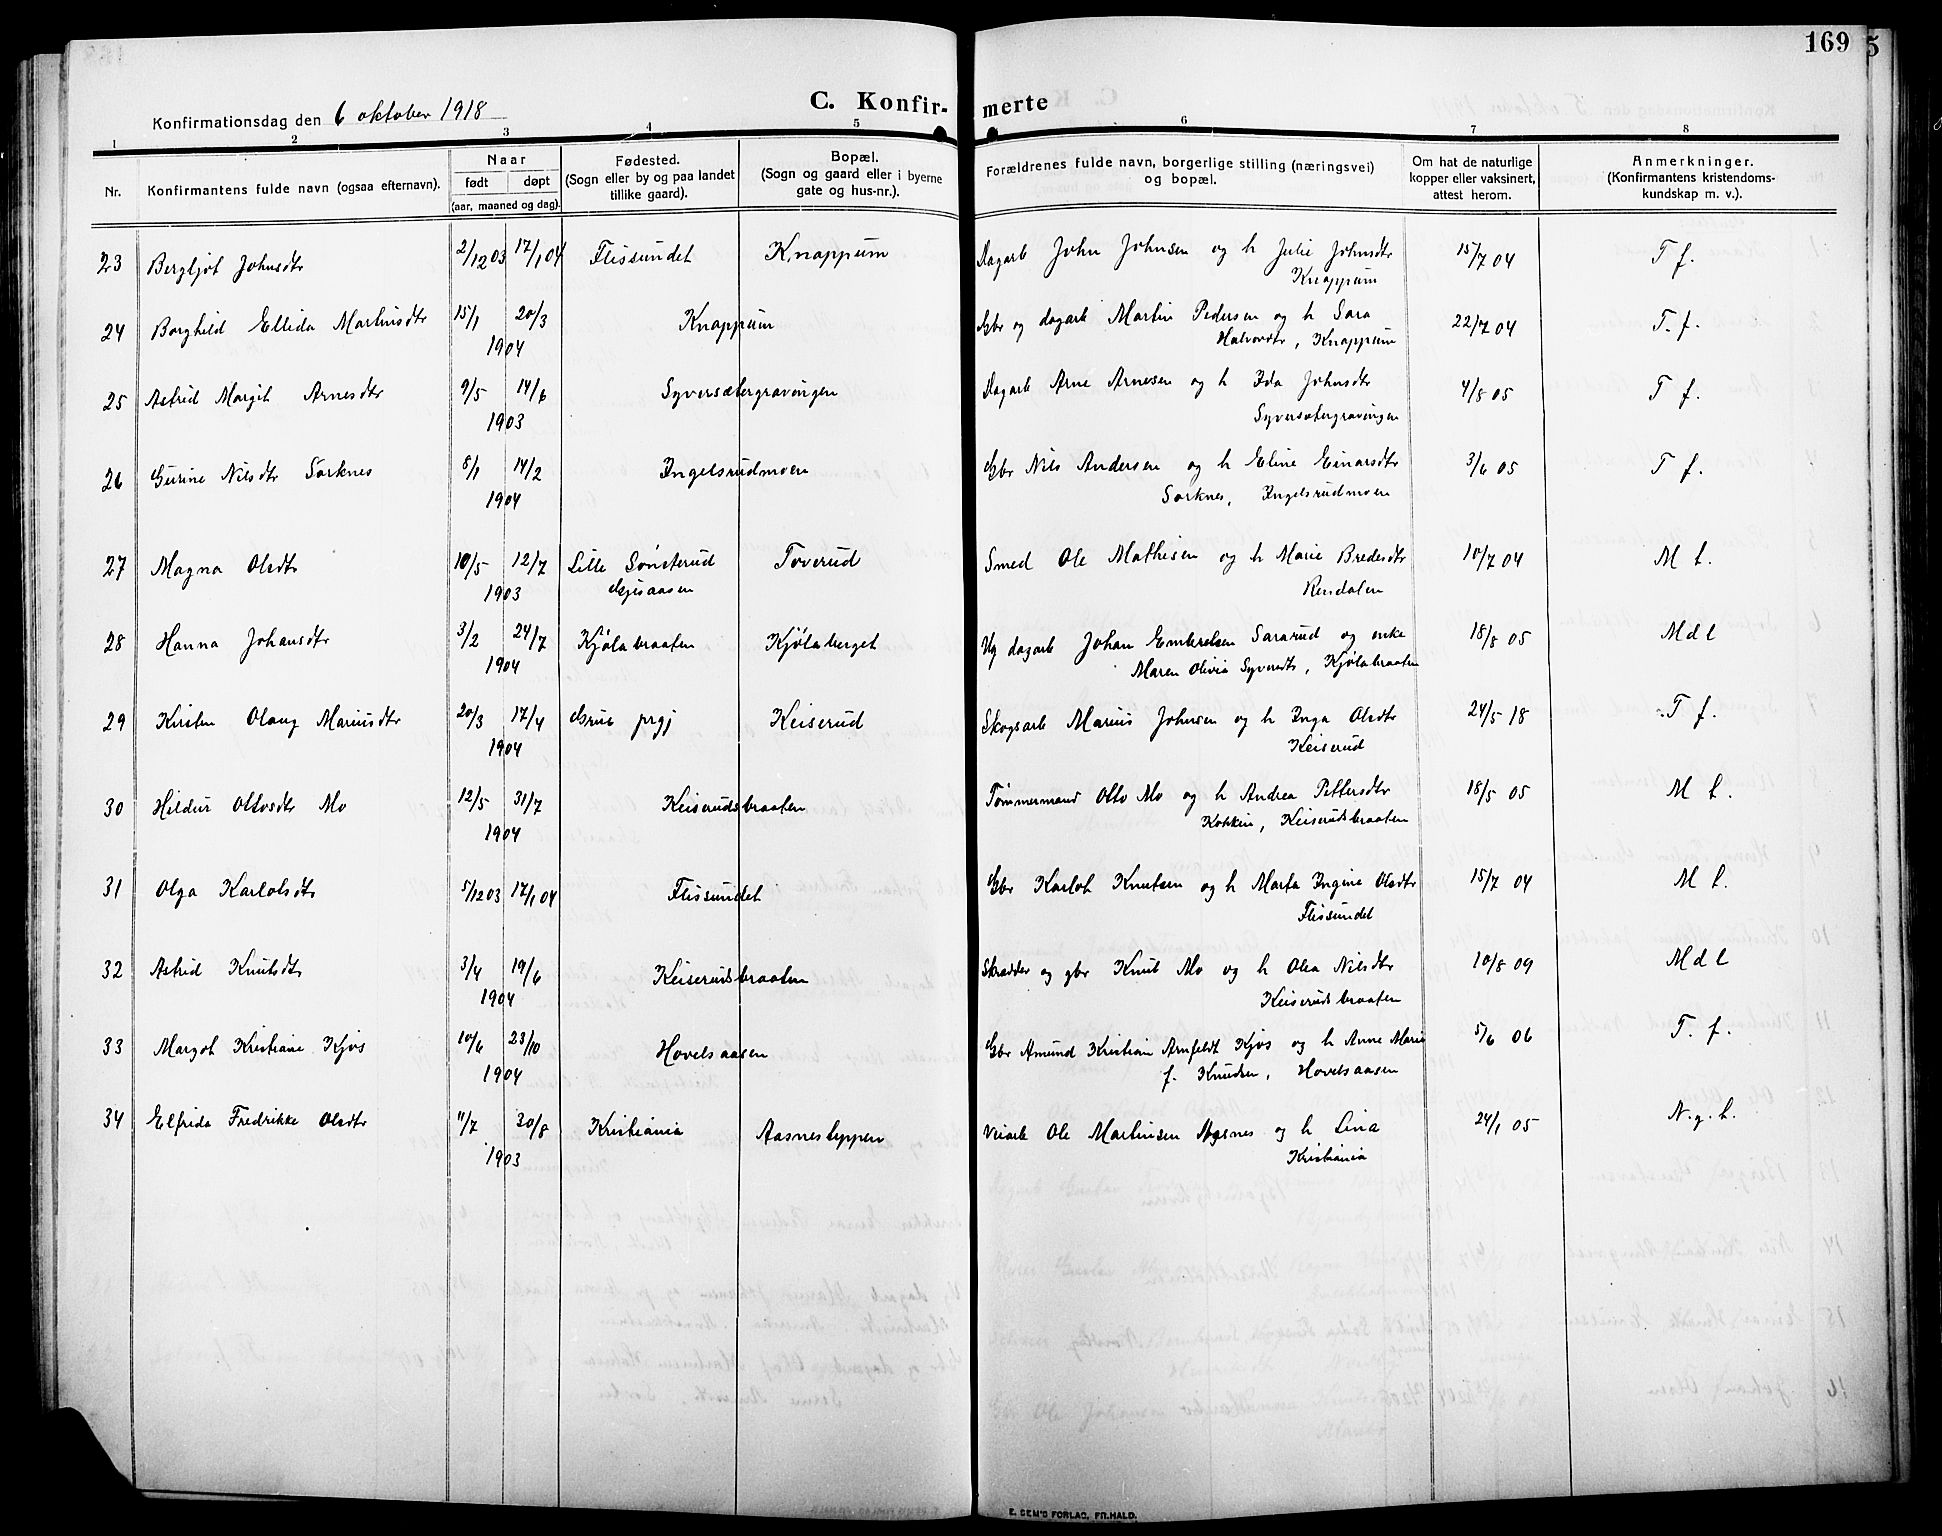 169 5
C. Konfir- merte
Konfirmationsdag den 6 oktober 1918
1 2 3 4 5 6 7 8
Nr. Konfirmantens fulde navn (ogsaa efternavn). Naar født døpt (aar, maaned og dag). Fødested. (Sogn eller by og paa landet tillike gaard). Bopæl. (Sogn og gaard eller i byerne gate og hus-nr.). Forældrenes fulde navn, borgerlige stilling (næringsvei) og bopæl. Om hat de naturlige kopper eller vaksinert, attest herom. Anmerkninger. (Konfirmantens kristendoms- kundskap m. v.).
23 Bergljot Johnsdtr 2/12 03 17/1 04 Flissundet Knappum Dagarb John Johnsen og h Julie Johnsdtr 15/7 04 T f.
Knappum
24 Borghild Ellida Martinsdtr 15/1 20/3 Knappum Gbr og dagarb Martin Pedersen og h Sara 22/7 04 T. f.
1904 Halvorsdtr, Knappum
25 Astrid Margit Arnesdtr 9/5 14/6 Syversætergravingen Dagarb Arne Arnesen og h Ida Johnsdtr 4/8 05 T f.
1903 Syversætergravingen
26 Gurine Nilsdtr Sorknes 8/1 14/2 Ingelsrudmoen Gbr Nils Andersen og h Eline Einarsdtr 3/6 05 T f.
1904 Sorknes, Ingelsrudmoen
27 Magna Olsdtr 10/5 12/7 Lille Sønsterud Toverud Smed Ole Mathisen og h Marie Bredesdtr 10/7 04 M t.
1903 Rendalen
28 Hanna Johansdtr 3/2 24/7 Kjølabraaten Kjølaberget Ug dagarb Johan Embretsen Sararud og enke 18/8 05 M d t
1904 Maren Olivia Syversdtr, Kjølabraaten
29 Kirsten Olaug Mariusdtr 20/3 17/4 Grue prgj Keiserud Skogsarb Marius Johnsen og h Inga Olsdtr 24/5 18 T f.
1904 Keiserud
30 Hildur Ottosdtr Mo 12/5 31/7 Keiserudsbraaten Tømmermand Otto Mo og h Andrea Pettersdtr 18/5 05 M t.
1904 Keiserudsbraaten
31 Olga Karlotsdtr 5/12 03 17/1 04 Flissundet Gbr Karlot Knutsen og h Marta Ingine Olsdtr 15/7 04 M t.
Flissundet
32 Astrid Knutsdtr 3/4 19/6 Keiserudsbraaten Skrædder og gbr Knut Mo og h Olea Nilsdtr 10/8 09 M d t
1904 Keiserudsbraaten
33 Margot Kristiane Kjos 10/6 23/10 Hovelsaasen Gbr Amund Kristian Arnfeldt Kjos og h Anne Marie 5/6 06 T. f.
1904 f. Knudsen, Hovelsaasen
34 Elfrida Fredrikke Olsdtr 11/7 30/8 Kristiania Aasnesteppen Veiarb Ole Martinsen Aasnes og h Lina 24/1 05 N. g. t.
1903 Kristiania
E. SEM'S FORLAG, FR.HALD.